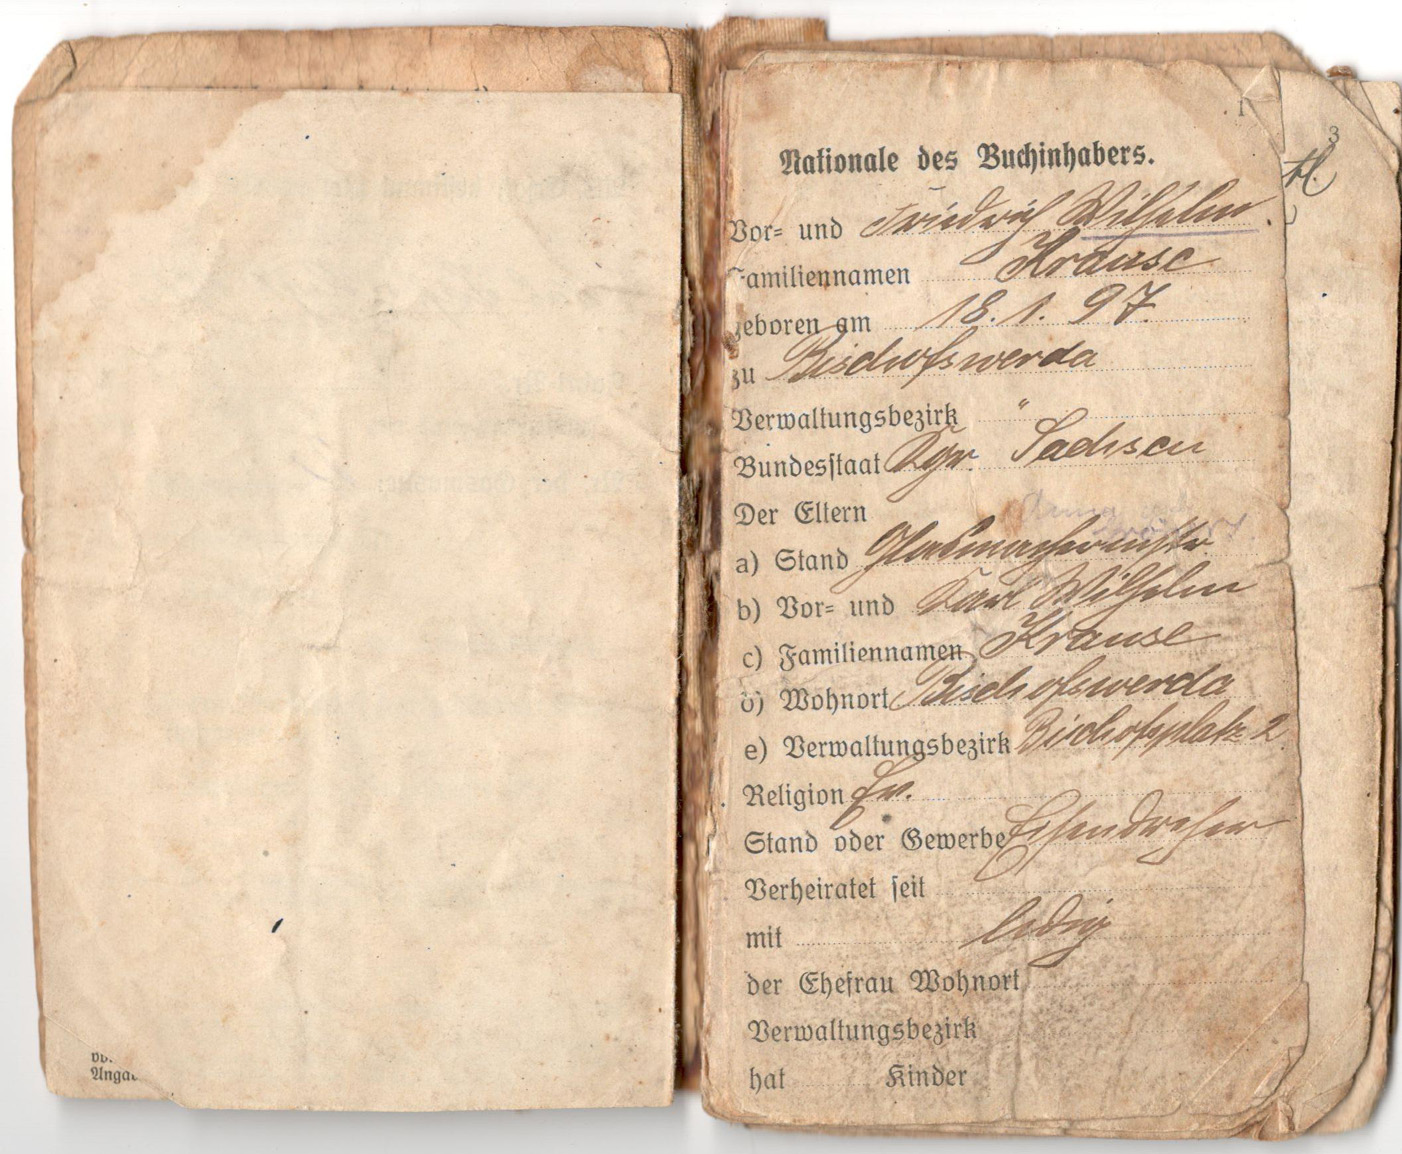 Anga
1
3
Nationale des Buchinhabers.
Vor- und Friedrich Wilhelm.
Familiennamen Krause
geboren am 18. 1. 97.
zu Bischofswerda
Verwaltungsbezirk "
Bundesstaat Kgr. Sachsen
Der Eltern
a) Stand Glasmachermstr.
b) Vor- und Karl Wilhelm
c) Familiennamen Krause
d) Wohnort Bischofswerda
e) Verwaltungsbezirk Bischofsplatz 2
Religion Ev.
Stand oder Gewerbe Eisendreher
Verheiratet seit
mit ledig
der Ehefrau Wohnort
Verwaltungsbezirk
hat Kinder